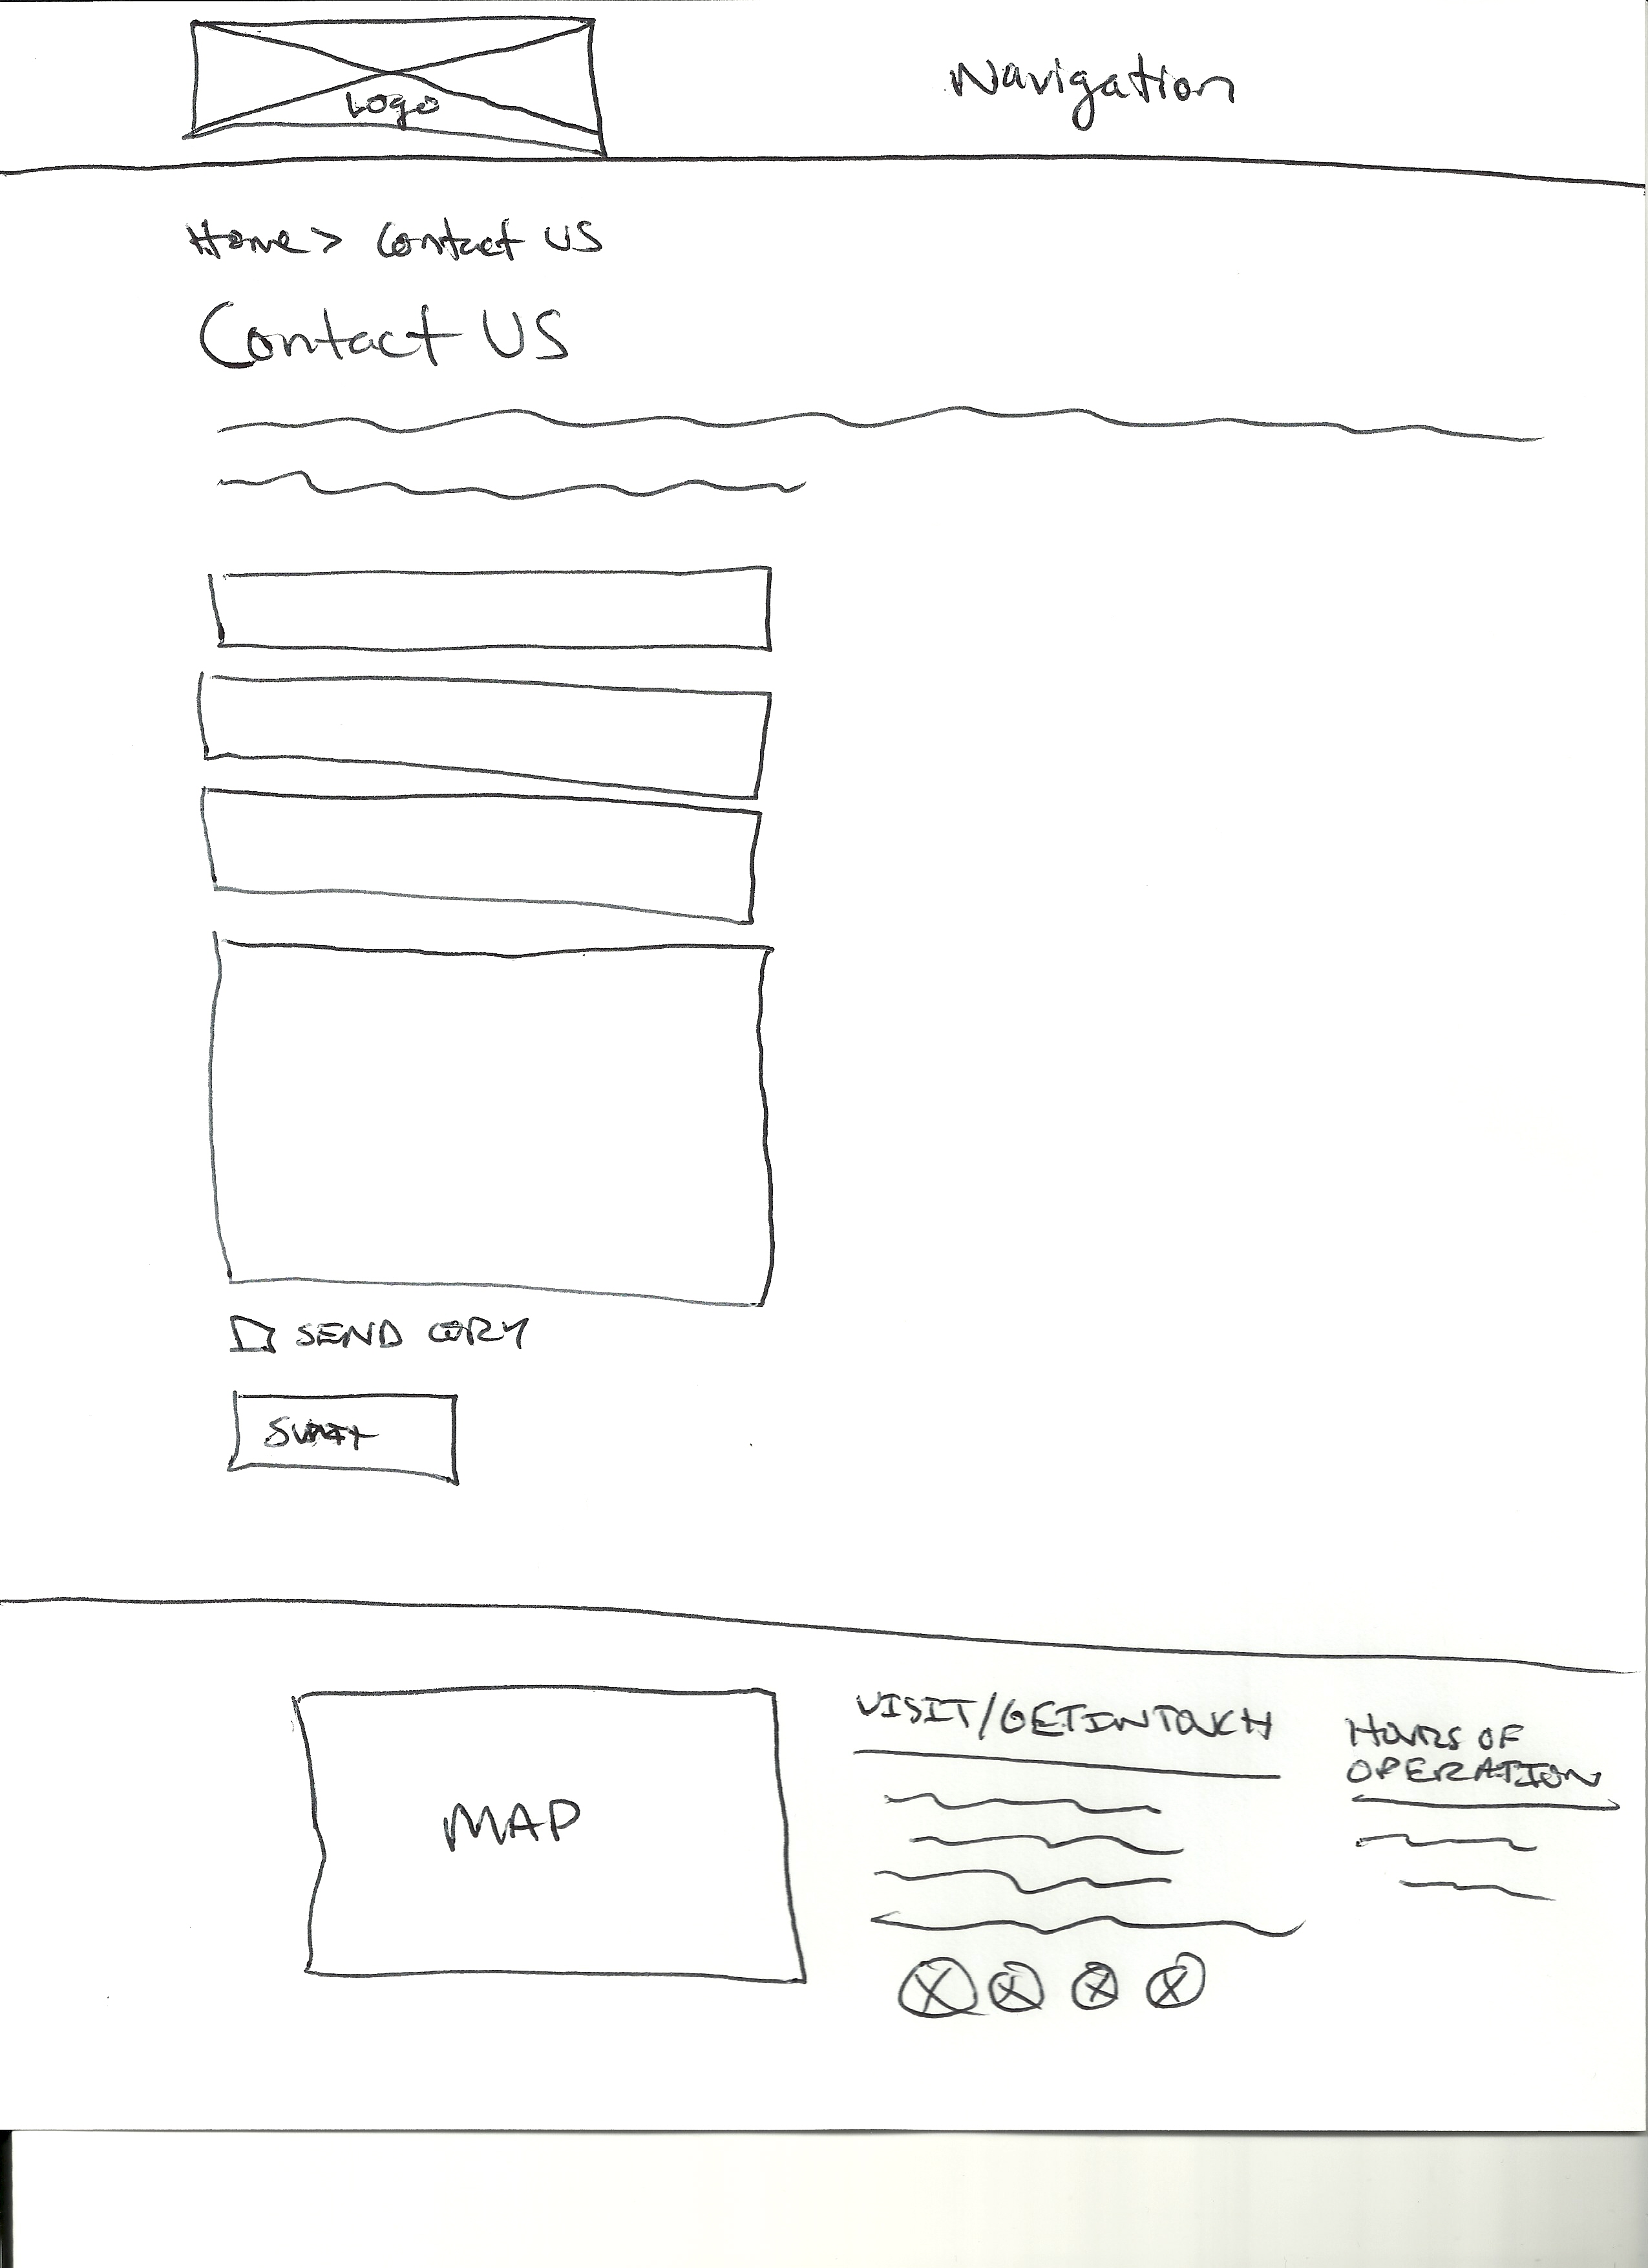 Logo
Navigation
Home > Contact US
Contact US
SEND COPY
VISIT/GET IN TOUCH
HOURS OF
OPERATION
MAP